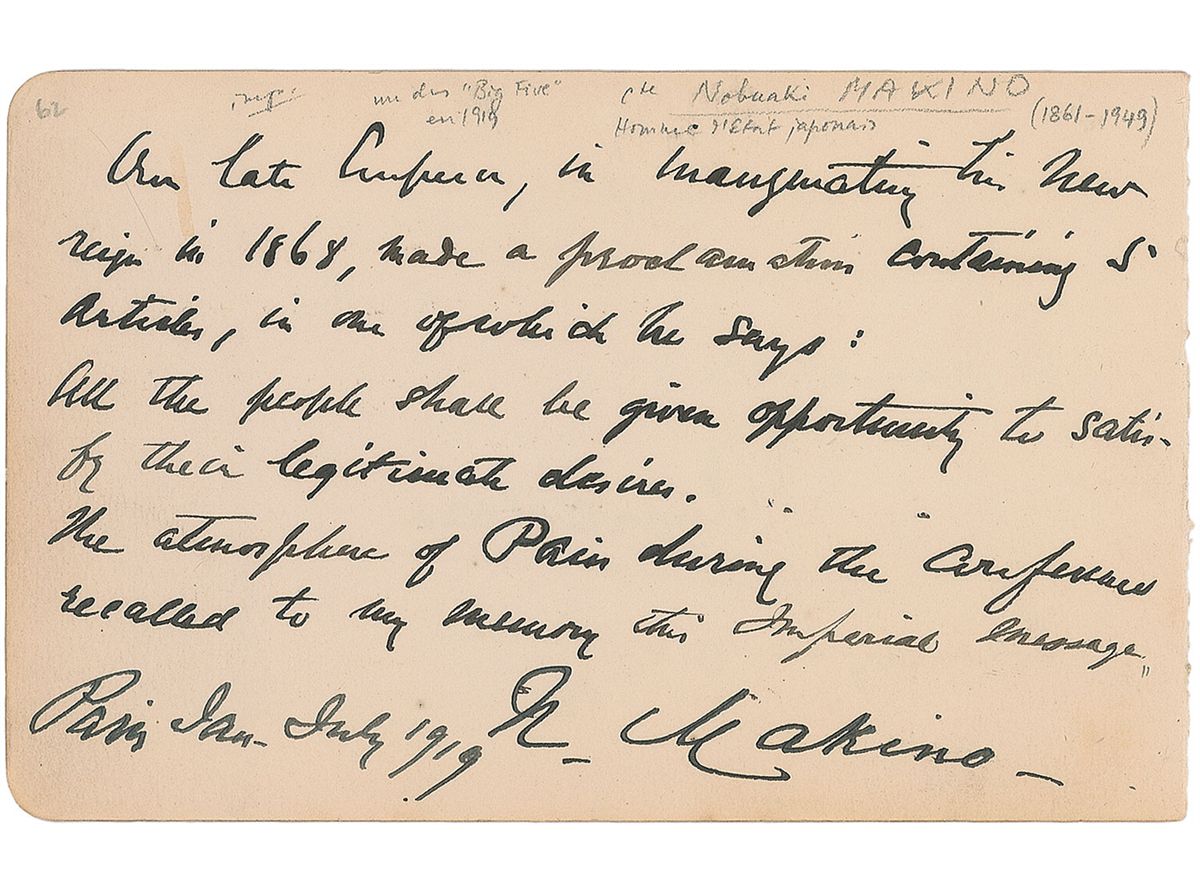 62 un des "Big Five" cte Nobuaki MAKINO
en 1919 Homme d'Etat japonais (1861-1949)
Our late Emperor, in inaugurating his new
reign in 1868, made a proclamation containing 5
articles, in one of which he says:
All the people shall be given opportunity to satis-
fy their legitimate desires.
The atmosphere of Paris during the Conference
recalled to my memory this Imperial message."
Paris Jan- July 1919 N- Makino-